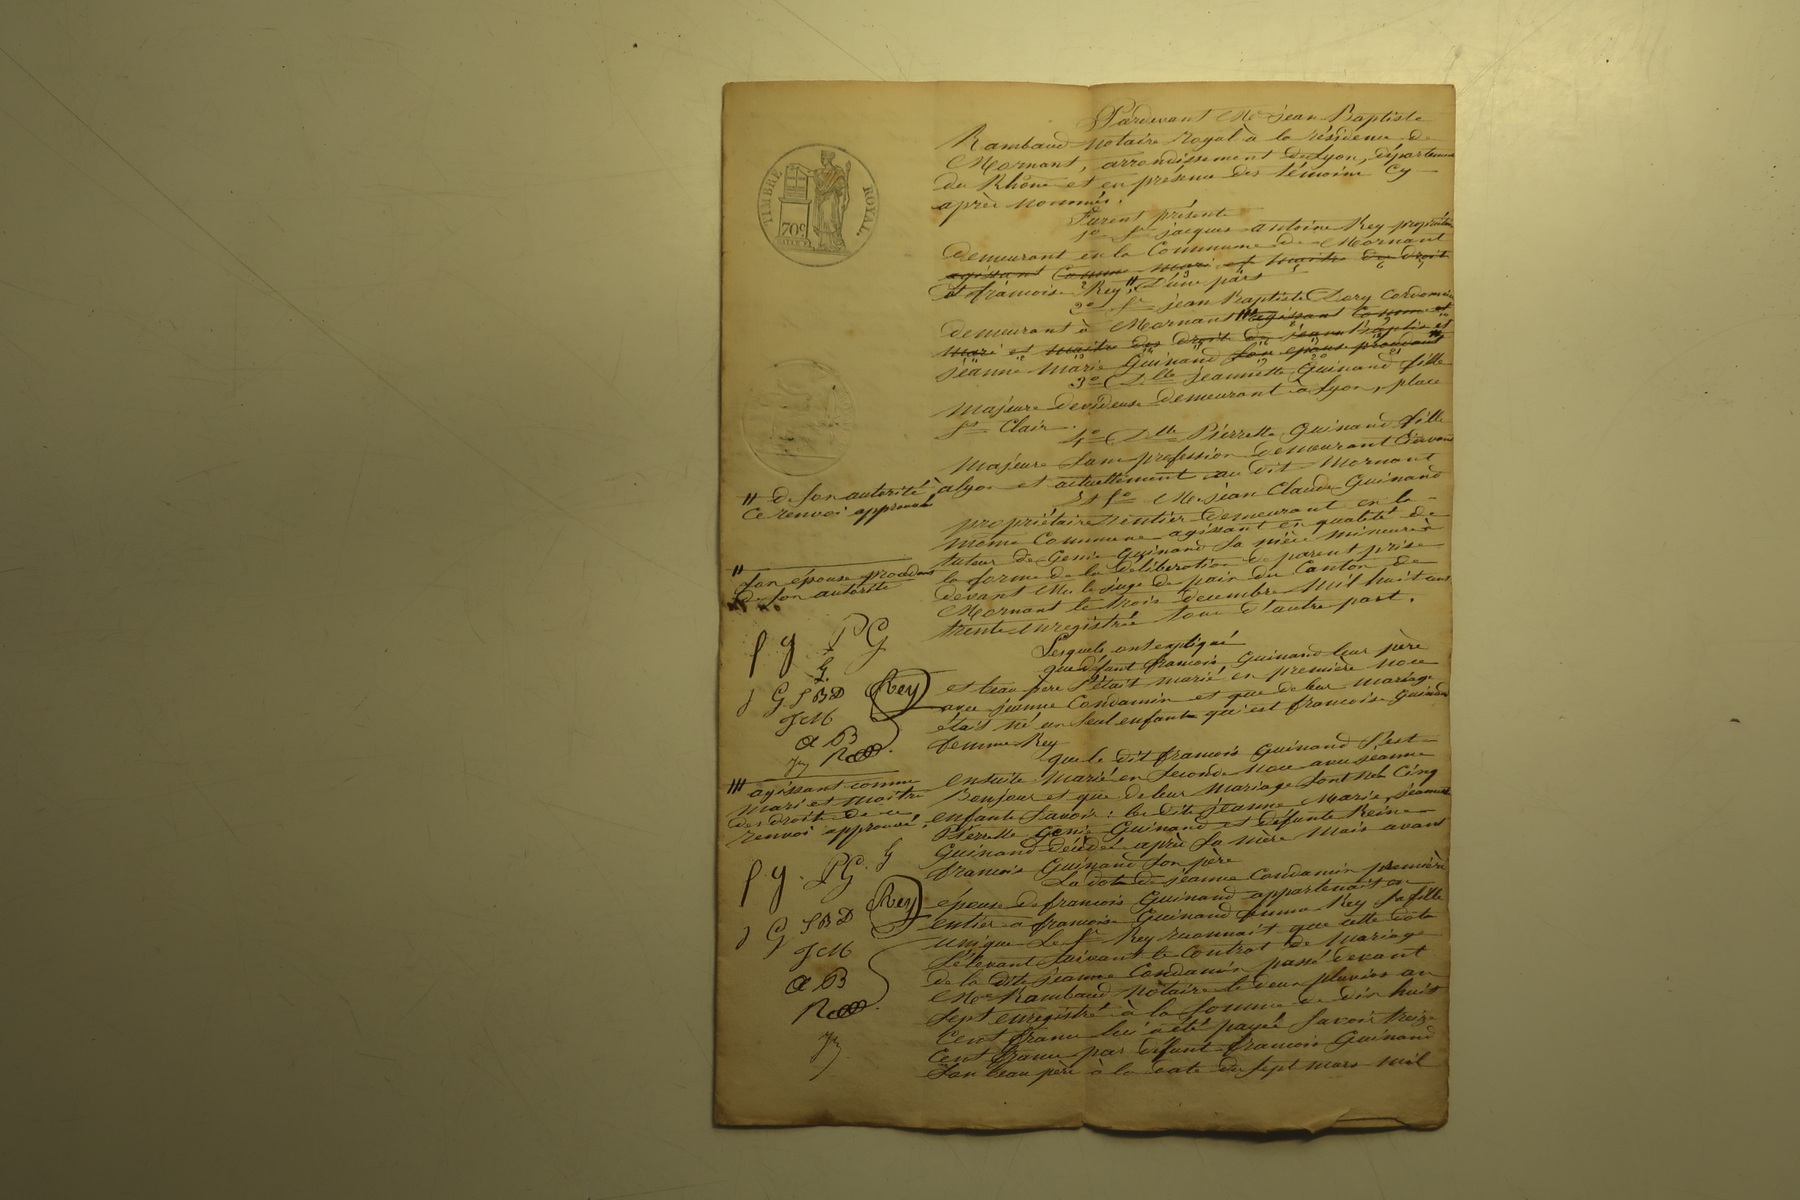 TIMBRE ROYAL
70c
Pardevant Me jean Baptiste
Rambaud notaire royal à la résidence de
Mornant, arrondissement de Lyon, département
du Rhône et en présence des témoins cy
après nommés.
Furent présents
1o Sr jacques antoine Rey propriétaire
demeurant en la Commune de Mornant
agissant Comme mari et maitre des droits
et françoise Rey # d'une part
2o Sr jean Baptiste Dory Cordonnier
demeurant à Mornant agissant Comme
mari et maitre des droits de jeanne Baptiste et
jeanne marie Guinand son épouse procédant
3o Dlle jeannette Guinand fille
majeure devideuse demeurant à Lyon, place
St Clair.
4o Dlle Pierrette Guinand fille
majeure sans profession demeurant
alyon et actuellement au dit Mornant
Et 5o Me jean Claude Guinand
propriétaire rentier demeurant en la
même Commune agissant en qualité de
tuteur de Genie Guinand sa nièce mineure à
la forme de la délibération de parent prise
devant Mr le juge de paix du Canton de
Mornant le trois decembre mil huit cent
trente enregistrée tous d'autre part.
Lesquels ont expliqué
que défunt françois Guinand leur père
et beau père s'était marié en première noce
avec jeanne Condamin et que de leur mariage
était né un seul enfant qui est francoise Guinand
femme Rey
que le dit françois Guinand s'est
ensuite marié en seconde noce avec jeanne
Bonjour et que de leur mariage sont nés Cinq
enfants savoir: les dites jeanne Marie, jeannette
Pierrette Genie Guinand et défunte Reine
Guinand décédée après sa mère mais avant
francois Guinand son père
La dote de jeanne Condamin première
épouse de francois Guinand appartenait en
entier a francoise Guinand femme Rey sa fille
unique Le Sr Rey reconnait que cette dote
s'élevant suivant le contrat de mariage
de la dite jeanne Condamin passé devant
Me Rambaud notaire le deux pluviose an
sept enregistré à la somme de dix huit
Cent francs lui a été payée savoir treize
Cent francs par défunt francois Guinand
son beau père à la date du sept mars mil
# de son autorité
Ce renvoi approuvé
son épouse procédant
de son autorité
J g PG
G
j G J B D Rey
J C M
a B
R
agissant comme
mari et maitre
des droits de
renvoi approuvé
J g. PG G
j G J B D Rey
J C M
a B
R